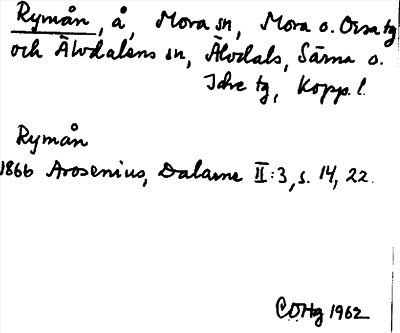 Rymån, å, Mora sn, Mora o. Orsa tg
och Älvdalens sn, Älvdals, Särna o.
Idre tg, Kopp. l.
Rymån
1866 Arosenius, Dalarne II:3, s. 14, 22.
CDHg 1962